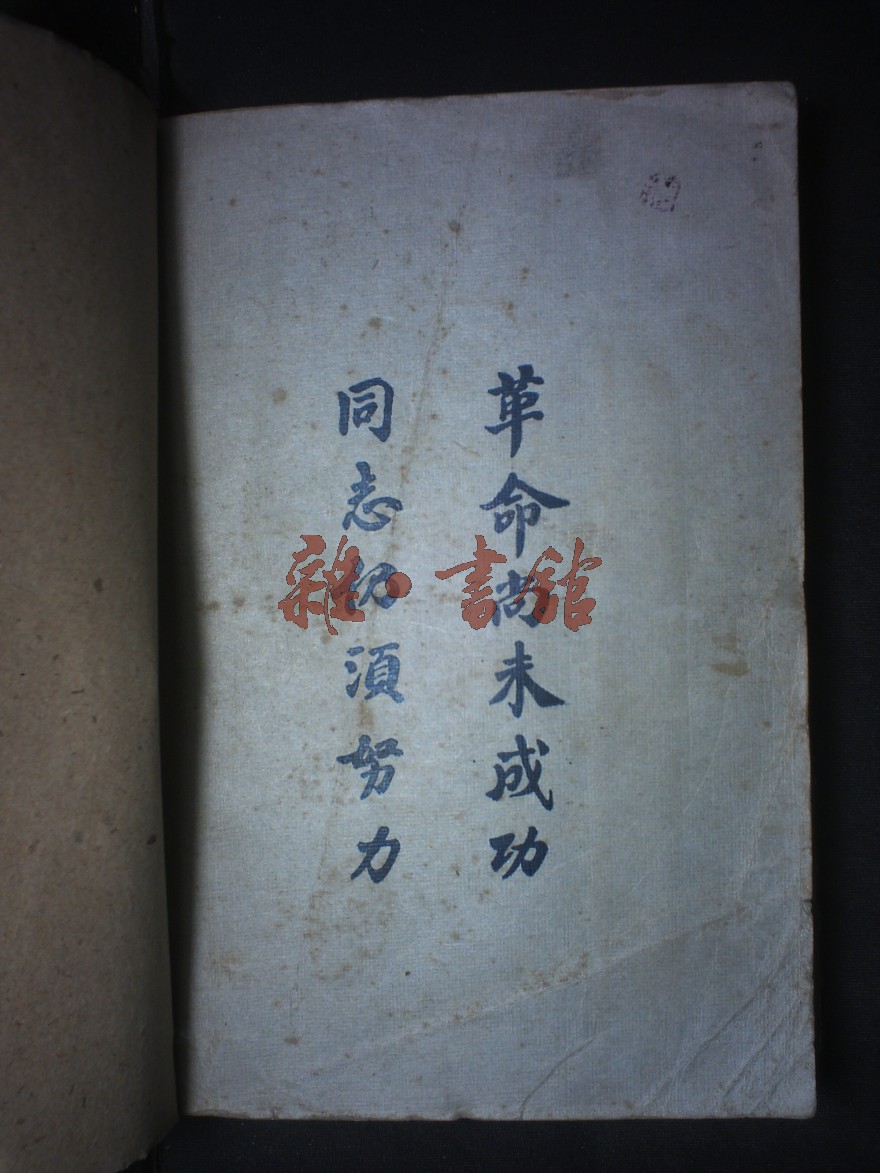 革命尚未成功
同志仍須努力
雜·書館